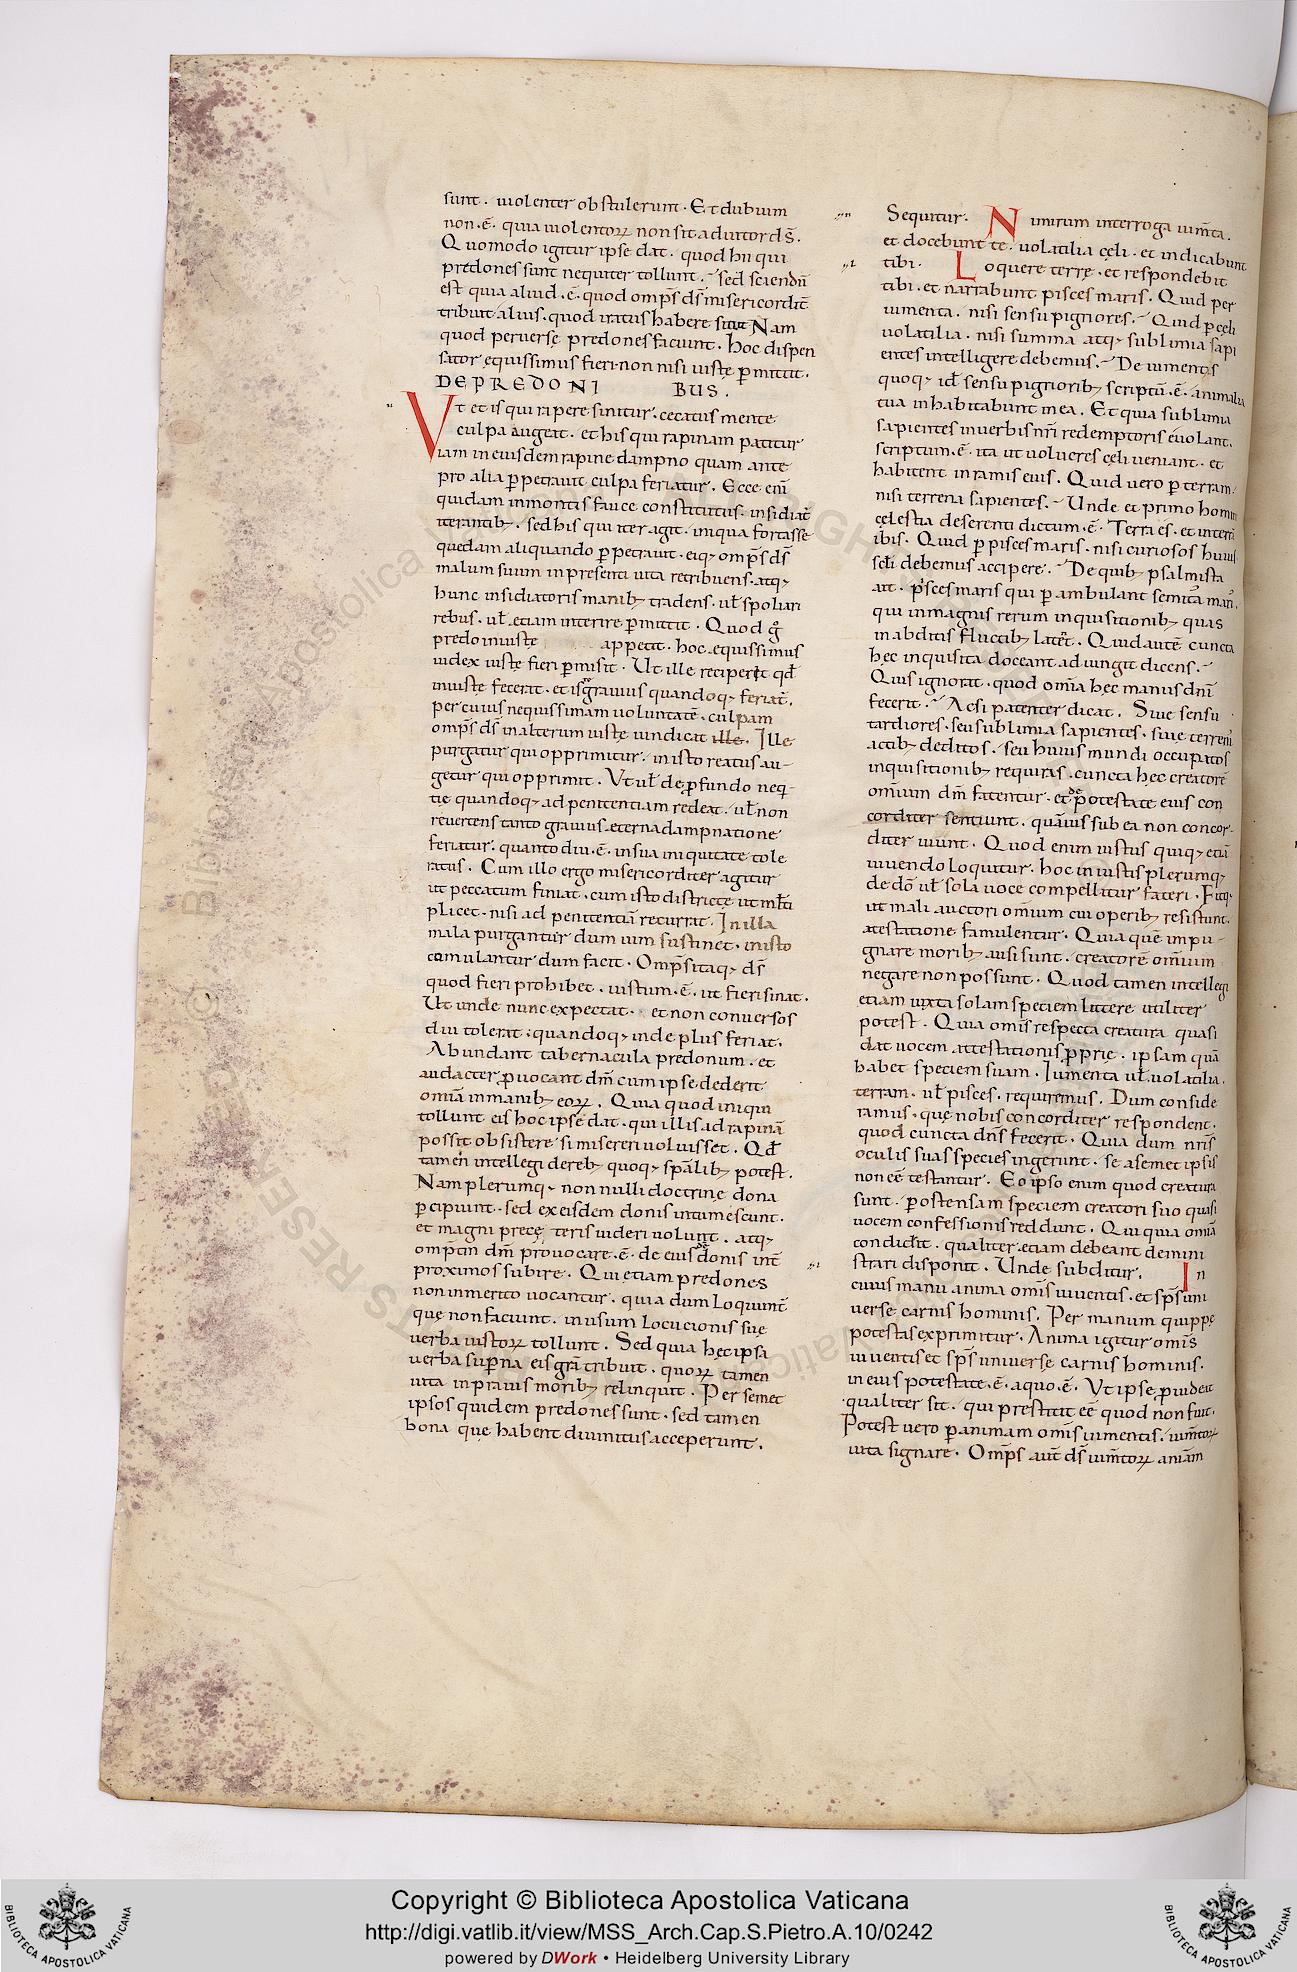 sunt. uiolenter obstulerunt. Et dubium
non .ē. quia uiolentoꝝ non sit adiutor dς̄.
Quomodo igitur ipse dat. quod hii qui
predones sunt nequiter tollunt. Sed sciendū
est quia aliud .ē. quod omps̄ ds̄ misericordit̄
tribuit. aliuś. quod iratus habere sinit Nam
quod peruerse predones faciunt. hoc dispen
sator ęquissimus fieri non nisi iustę ꝑmittit.
DE PREDONI BUS.
Vt et is qui rapere sinitur. cecatus mente
culpa augeat. et his qui rapinam patitur
iam in eiusdem rapine dampno quam ante
pro alia ꝑpetrauit culpa feriatur. Ecce eni̅
quidam in montis fauce constitutus. insidiat̄
iterantib;. sed his qui iter agit. iniqua fortasse
quedam aliquando ꝑpetrauit. eiq; omps̄ ds̄
malum suum in presenti uita retribuens. atq;
hunc insidiatoris manib; tradens. ul̄ spoliari
rebus. ul̄ etiam interire ꝑmittit. Quod g̊
predo iniuste appetit. hoc equissimus
iudex iustę fieri ꝑmisit. Ut ille reciperet qd̄
iniuste fecerat. et is grauius quandoq; feriat̄.
per cuius nequissimam uoluntatē. culpam
omps̄ ds̄ in alterum iustę uindicat ille. Ille
purgatur qui opprimitur. in isto reatus au-
getur qui opprimit. Vt ul̄ de ꝓfundo neq-
tie quandoq; ad penitentiam redeat. ul̄ non
reuertens tanto grauius eterna dampnatione
feriatur. quanto diu .ē. in sua iniquitate tole
ratus. Cum illo ergo misericorditer agitur
ut peccatum finiat. cum isto districtę ut ml̄ti
plicet. nisi ad penitentiā recurrat. In illa
mala purgantur dum uim sustinet. in isto
cumulantur dum facit. Omps̄ itaq; ds̄
quod fieri prohibet. iustum .ē. ut fieri sinat.
Ut unde nunc expectat. et non conuersos
diu tolerat. quandoq; inde plus feriat.
Abundant tabernacula predonum. et
audacter ꝓuocant dm̄ cum ipse dederit
omīa in manib; eoꝝ. Quia quod iniqui
tollunt eis hoc ipse dat. qui illis ad rapinā
possit obsistere si misereri uoluisset. Qd̄
tamen intellegi de reb; quoq; spālib; potest.
Nam plerumq; non nulli doctrinę dona
ꝑcipiunt. sed ex eisdem donis intumescunt.
et magni prę cęteris uideri uolunt. atq;
omptin dm̄ prouocare .ē. de eius donis int̄
proximos subire. Qui etiam predones
non inmerito uocantur. quia dum loquunt̄
quę non faciunt. in usum locucionis suę
uerba iustoꝝ tollunt. Sed quia hęc ipsa
uerba suꝑna eis grā tribuit. quoꝝ tamen
uita in prauis morib; relinquit. Per semet
ipsos quidem predones sunt. sed tamen
bona quę habent diuinitus acceperunt.
Sequitur. Nimirum interroga ium̄ta.
et docebunt te. uolatilia cęli. et indicabunt
tibi. Loquere terrę. et respondebit
tibi. et narrabunt pisces maris. Quid per
iumenta. nisi sensu pigriores. Quid ꝑ cęli
uolatilia. nisi summa atq; sublimia sapi
entes intelligere debemus. De iumentis
quoq; id̄ sensu pigriorib; scriptū .ē. animalia
tua inhabitabunt in ea. Et quia sublimia
sapientes in uerbis nr̄i redemptoris euolant.
scriptum .ē. ita ut uolucres cęli ueniant. et
habitent in ramis eius. Quid uero ꝑ terram.
nisi terrena sapientes. Unde et primo homin
cęlestia deserenti dictum .ē. Terra es. et in terrā
ibis. Quid ꝑ pisces maris. nisi curiosos huius
scl̄i debemus accipere. De quib; psalmista
ait. pisces maris qui ꝑambulant semitas maris.
qui in magnis rerum inquisitionib; quas
in abditis fluctib; latēt. Quid autē cuncta
hęc inquisita doceant adiungit dicens.
Quis ignorat. quod omīa hęc manus dnī
fecerit. Ac si patenter dicat. Siue sensu
tardiores. seu sublimia sapientes. siue terrenis
actib; deditos. seu huius mundi occupatos
inquisitionib; requiras. cuncta hęc creatorē
omnium dm̄ fatentur. et de potestate eius con
corditer sentiunt. quāuis sub ea non concor-
diter uiuunt. Quod enim iustus quiq; etiā
uiuendo loquitur. hoc iniustis plerumq;
de dō ul̄ sola uoce compellitur fateri. Fitq;
ut mali auctori omnium cui operib; resistunt.
atestatione famulentur. Quia quē impu-
gnare morib; ausi sunt. creatorē omnium
negare non possunt. Quod tamen intellegi
etiam iuxta solam speciem litterę utiliter
potest. Quia omīs respecta creatura quasi
dat uocem attestationis ꝓprię. ipsam quā
habet speciem suam. Iumenta ul̄ uolatilia.
terram. ul̄ pisces. requiremus. Dum conside
ramus. quę nobis concorditer respondent.
quod cuncta dns̄ fecerit. Quia dum nr̄is
oculis suas species ingerunt. se a semet ipsis
non eē testantur. Eo ipso enim quod creatura
sunt. ꝑ ostensam speciem creatori suo quasi
uocem confessionis reddunt. Qui quia omīa
condidit. qualiter etiam debeant demini
strari disponit. Unde subditur. In
cuius manu anima omīs uiuentis. et sps̄ uni
uerse carnis hominis. Per manum quippe
potestas exprimitur. Anima igitur omīs
uiuentis et sps̄ uniuerse carnis hominis.
in eius potestate .ē. a quo .ē. Vt ipse ꝓuideat
qualiter sit. qui prestitit eē quod non fuit.
Potest uero ꝑ animam omīs uiuentis. ium̄toꝝ
uita signare. Omps̄ aut̄ ds̄ ium̄toꝝ aniām
Copyright © Biblioteca Apostolica Vaticana
http://digi.vatlib.it/view/MSS_Arch.Cap.S.Pietro.A.10/0242
powered by DWork • Heidelberg University Library